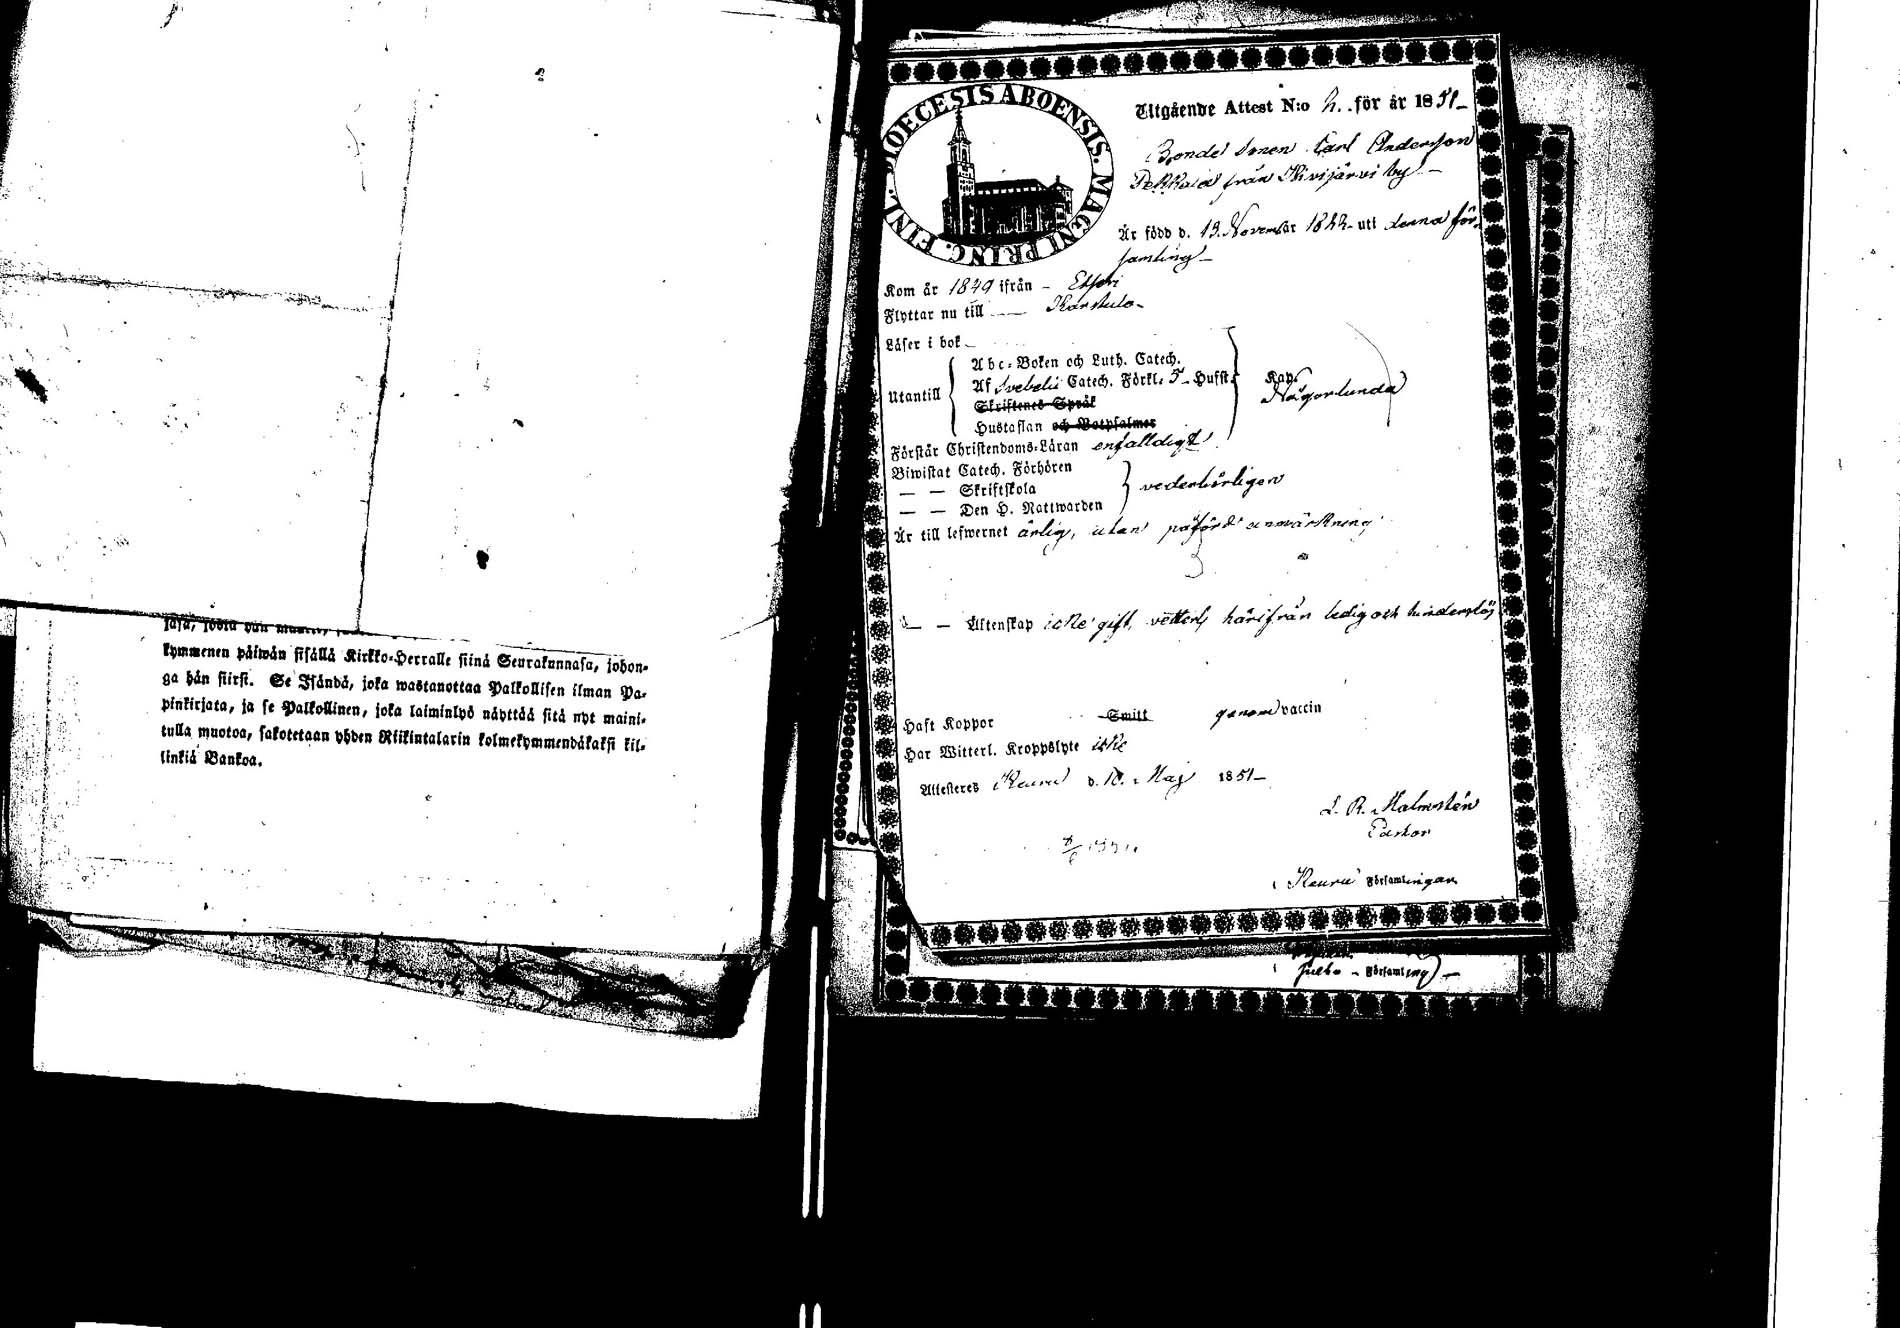 kymmenen päiwän sisällä Kirkko-Herralle siinä Seurakunnasa, johon-
ga hän siirst. Se Isändä, joka wastanottaa Palkollisen ilman Pa-
pinkirjata, ja se Palkollinen, joka laiminlyö näyttää sitä nyt maini-
tulla muotoa, sakotetaan yhden Riikintalarin kolmekymmendäkaksi kil-
linkiä Bankoa.
DIOECESIS ABOENSIS. MAGNI PRINC. FINL.
Utgående Attest N:o 2. för år 1851-
Bonde Sonen Carl Andersson
Pekkala från Kivijärvi by -
Är född d. 13. November 1822- uti denna för-
samling -
Kom år 1849 ifrån - Etseri
Flyttar nu till - Karstula -
Läser i bok
Utantill
Abc-Boken och Luth. Catech.
Af Svebelii Catech. Förkl. 5- Hufst.
Skriftenes Språk
Hustaflan och Botpsalmer
Kap.
Någorlunda
Förstår Christendoms-Läran enfalldigt
Biwistat Catech. Förhören
— — Skriftskola
— — Den H. Nattwarden
vederbörligen
Är till lefwernet ärlig, utan påförd anmärkning
— — Äktenskap icke gift, vetterl. härifrån ledig och hinderslös
Haft Koppor Smitt genom vaccin
Har Witterl. Kroppslyte icke
Attesteres Keuru d. 10. Maj 1851-
L. R. Malmstén
Pastor
i Keuru Församlingar
Församling -